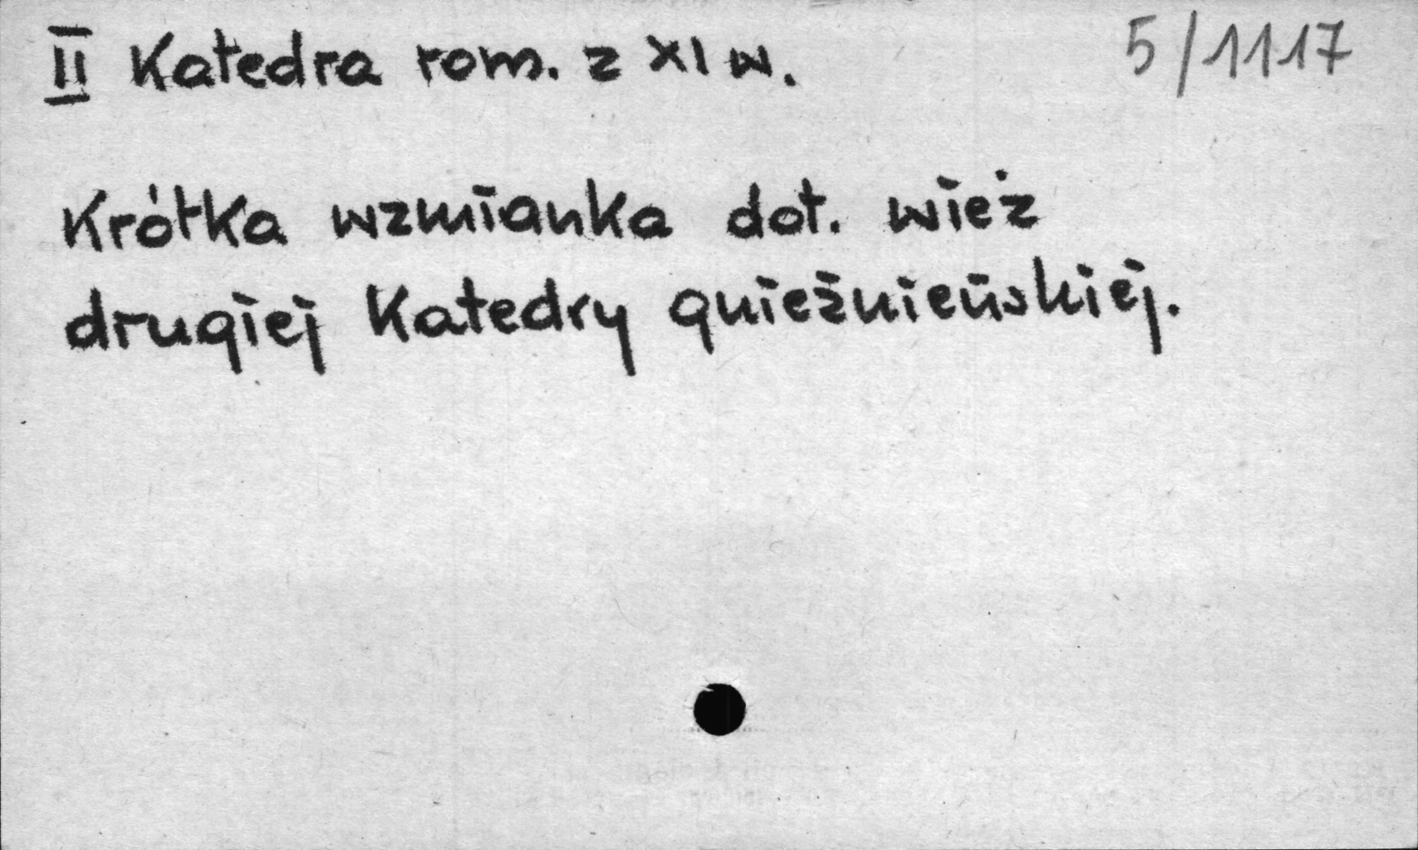 II Katedra rom. z XI w. 5/1117
Krótka wzmianka dot. wież
drugiej Katedry gnieźnieńskiej.